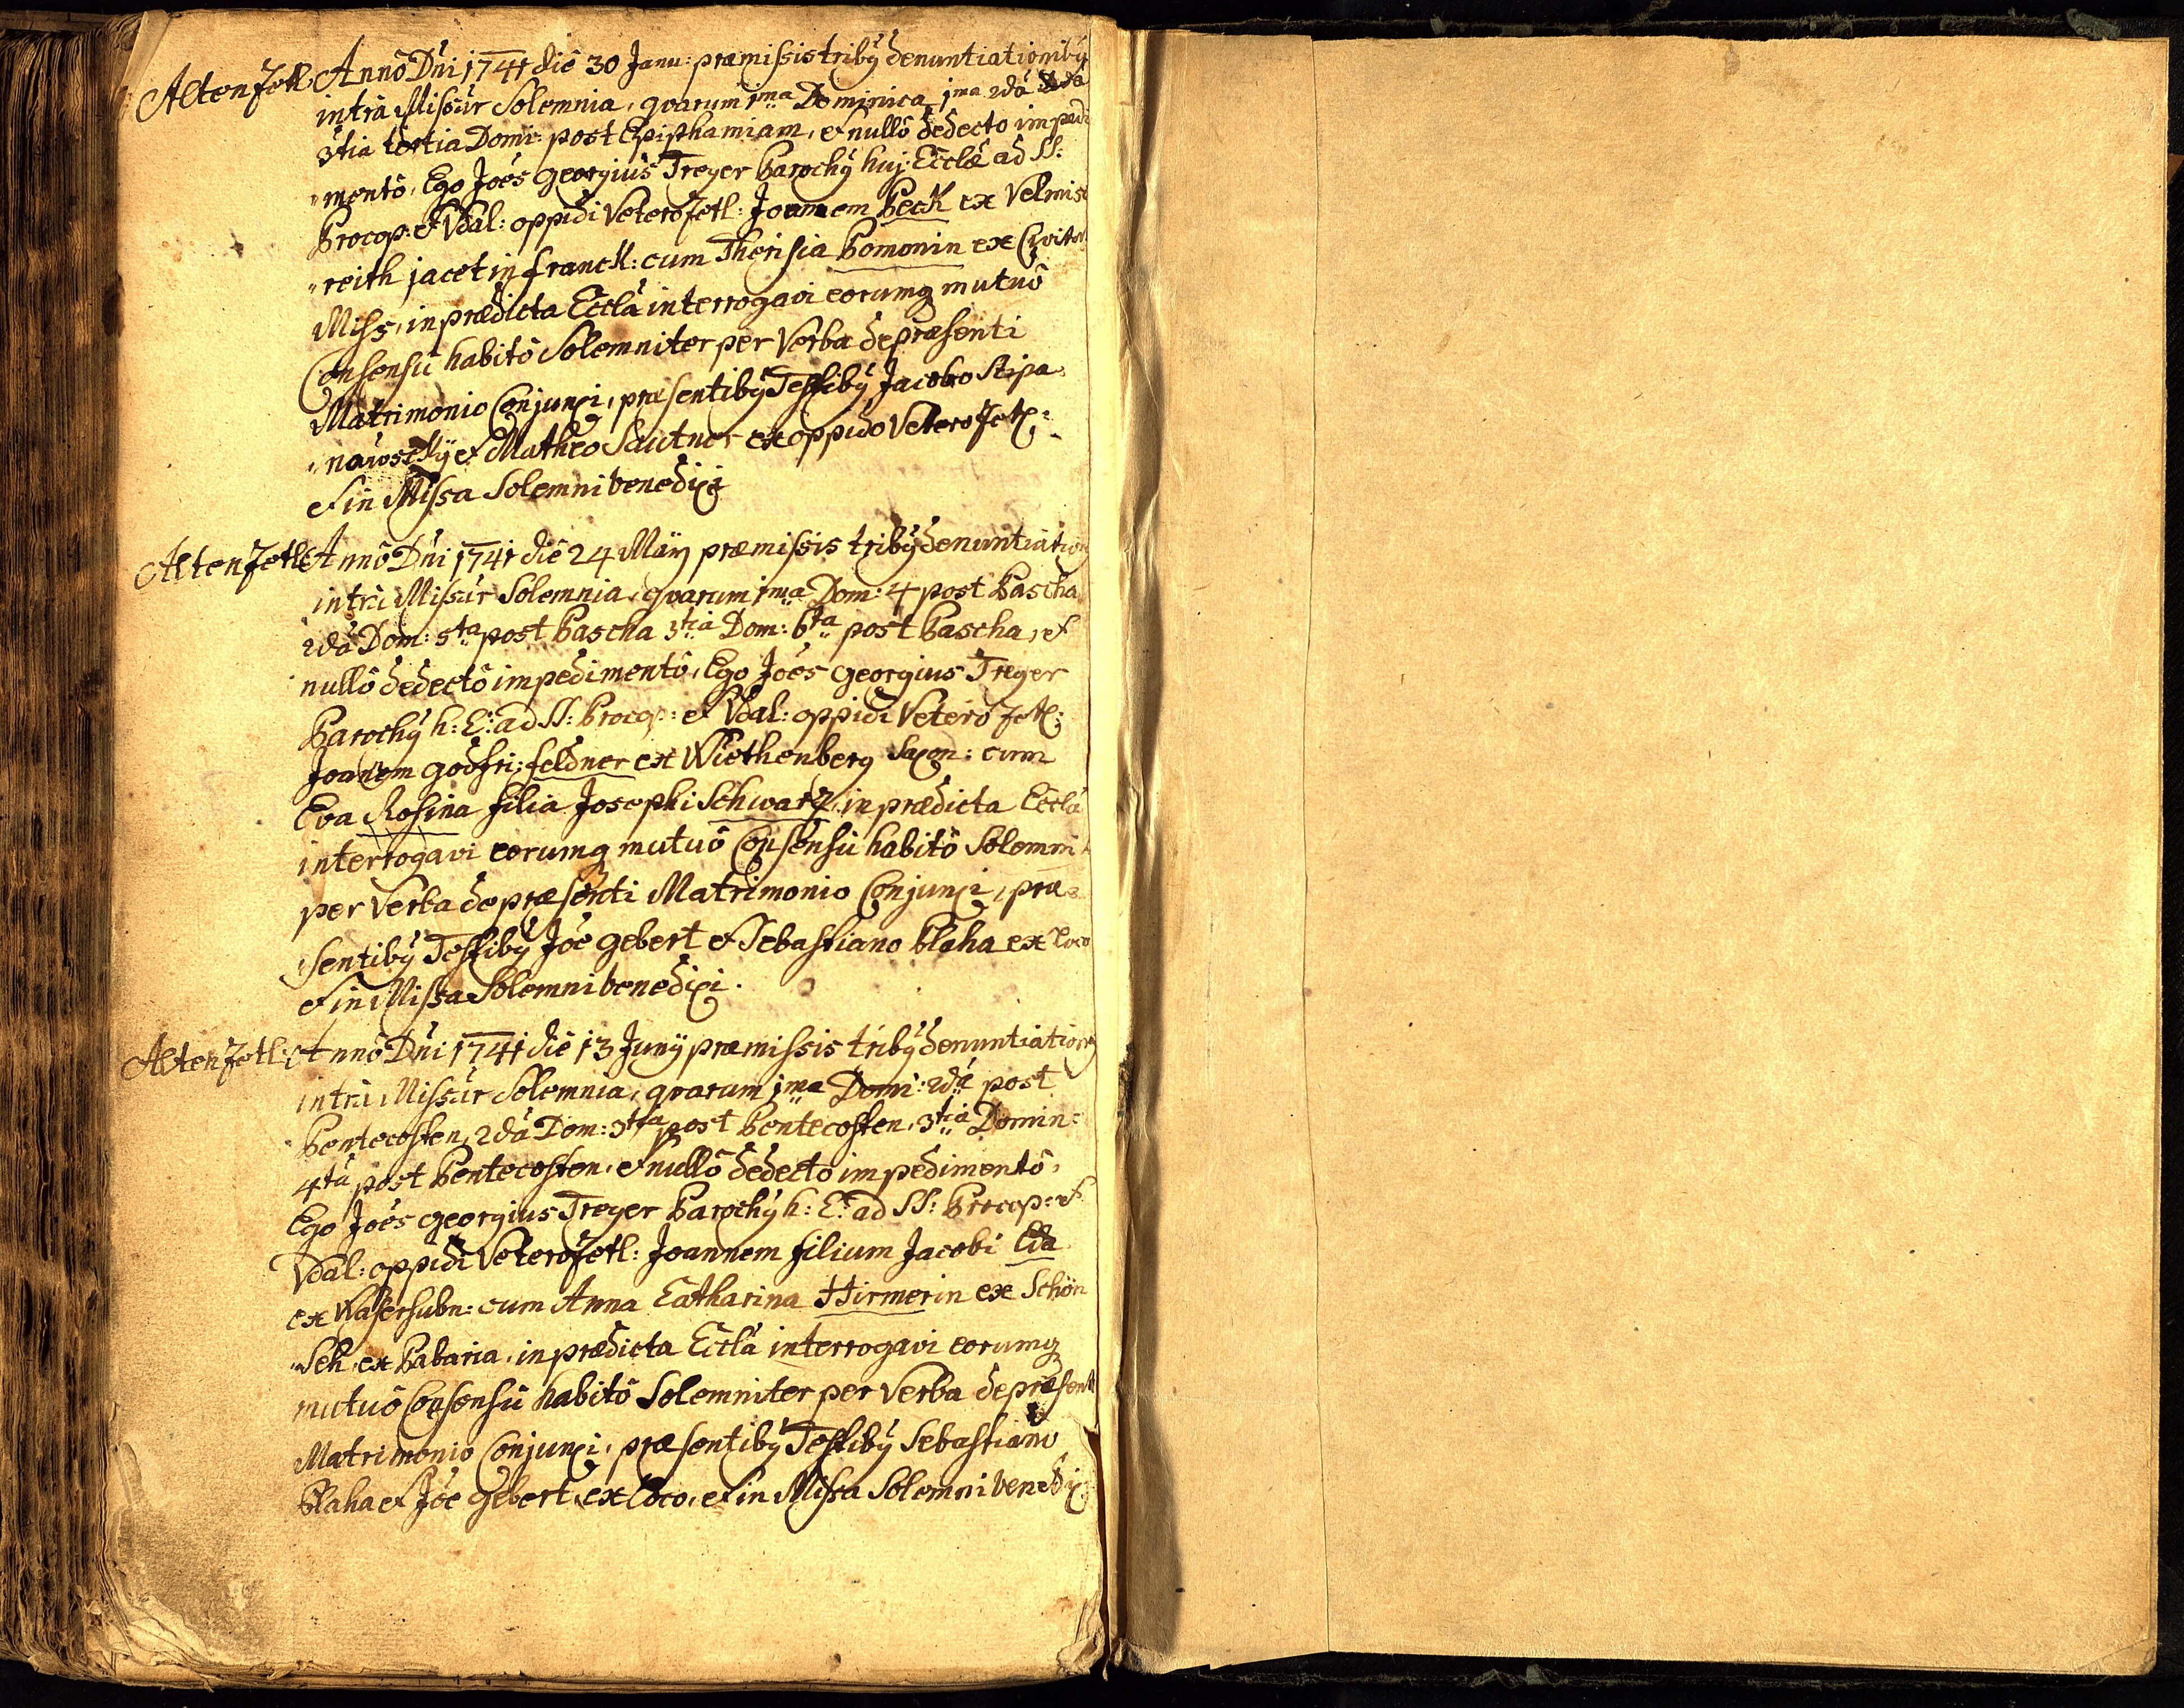 Altenzetl: Annô Dni 1741 diê 30 Janu: præmissis tribÿ denuntiationibÿ
intrà Missar Solemnia, qvarum 1ma Dominica 1ma 2dà
3tià tertia Domi: post Epiphamiam, et nullô dedecto impedi
mentô, Ego Joês georgiùs Treyer Parochÿ huj: Ecclæ ad SS:
Procop: et Vdal: oppidi Veterozetl: Joannem Peck ex Velmis
reith jacet in franck: cum Therisia Pomonin ex Civitat
Miss, in prædicta Ecclà interrogavi eorumq mutuô
Consensù habitô Solemniter per Verba de præsenti
Matrimonio Conjunxi, præsentibÿ Testibÿ Jacobo Stipa
nawsckÿ et Matheo Sautner ex oppido Veterozetl:
et in Missa Solemni benedixi
Altenzetl: Annô Dni 1741 diê 24 Maÿ præmissis tribÿ denuntiation
intrà Missar Solemnia, qvarum 1ma Dom: 4 post Pascha
2dà Dom: 5ta post Pascha 3tià Dom: 6ta post Pascha, et
nullô dedectô impedimentô, Ego Joês georgius Treyer
Parochÿ h: E: ad SS: Procop: et Vdal: oppidi Veterozetl:
Joannem godfri: feldner ex Wiethenberg Saxon: cum
Eva Rosina filia Josephi Schwartz, in prædicta Ecclà
interrogavi eorumq mutuô Consensù habitô Solemni
per Verba de præsenti Matrimonio Conjunxi, præ
sentibÿ Testibÿ Joê gebert et Sebastiano Blaha ex loco
et in Missa Solemni benedixi.
Altenzetl: Annô Dni 1741 diê 13 Junÿ præmissis tribÿ denuntiation
intrà Missar Solemnia, qvarum 1ma Domi: 2dà post
Pentecosten, 2dà Dom: 3tia post Pentecosten, 3tià Domin:
4tà post Pentecosten, et nullô dedecto impedimentô,
Ego Joês georgius Treyer Parochÿ h: E: ad SS: Procop: et
Vdal: oppidi Veterozetl: Joannem filium Jacobi Eda
ex Waserhubn: cum Anna Catharina Hirmerin ex Schön
Seh, ex Babaria, in prædicta Ecclà interrogavi eorumq
mutuô Consensù habitô Solemniter per Verba de præsenti
Matrimonio Conjunxi, præsentibÿ Testibÿ Sebastiano
Blaha et Joê gebert, ex loco, et in Missa Solemni benedixi